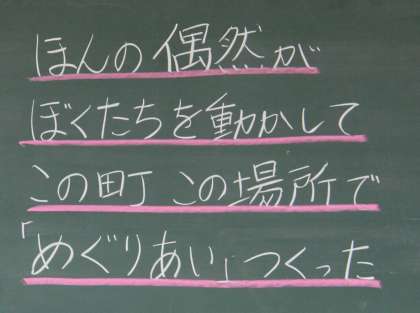 ほんの偶然が
ぼくたちを動かして
この町 この場所で
「めぐりあい」つくった